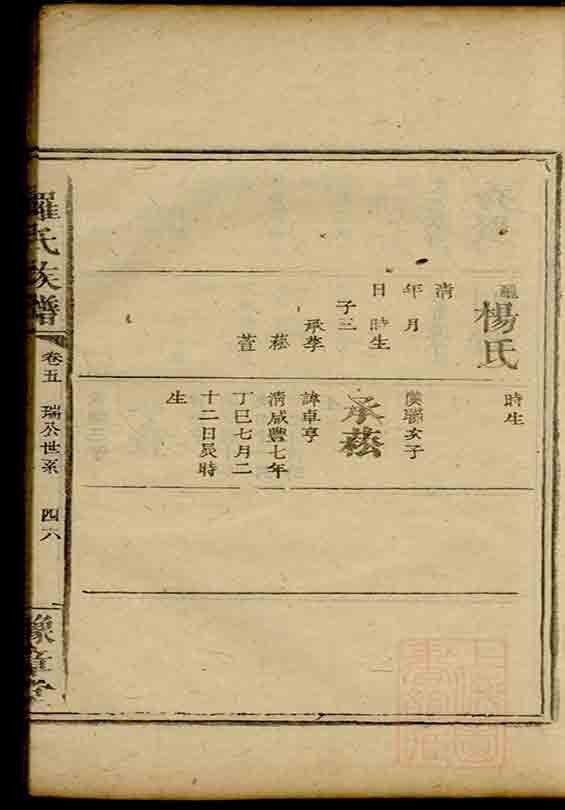 配楊氏
清
年 月
日 時生
子三
承荂
菘
萱
時生
僕聯女子
承菘
諱卓亭
清咸豐七年
丁巳七月二
十二日辰時
生
羅氏族譜
卷五 瑞公世系 四六
豫章堂